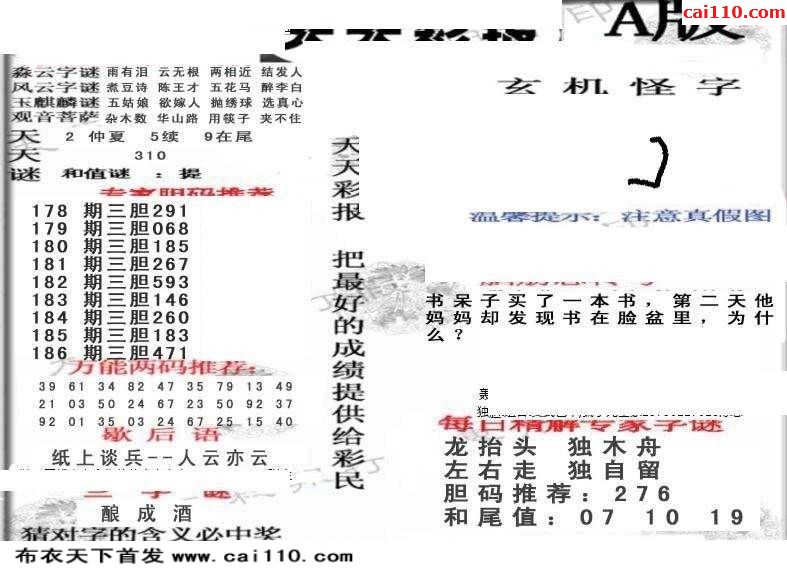 cai110.com
A版
淼云字谜 雨有泪 云无根 两相近 结发人
风云字谜 煮豆诗 陈王才 五花马 醉李白
玉麒麟谜 五姑娘 欲嫁人 抛绣球 选真心
观音菩萨 杂木数 华山路 用筷子 夹不住
天 2 仲夏 5续 9在尾
天 310
谜 和值谜 ：提
专家胆码推荐
178 期三胆291
179 期三胆068
180 期三胆185
181 期三胆267
182 期三胆593
183 期三胆146
184 期三胆260
185 期三胆183
186 期三胆471
万能两码推荐:
39 61 34 82 47 35 79 13 49
21 03 50 24 67 23 50 92 37
92 01 35 03 24 67 25 15 40
歇后语
纸上谈兵--人云亦云
三字谜
酿成酒
猜对字的含义必中奖
天天彩报 把最好的成绩提供给彩民
玄机怪字
温馨提示：注意真假图
书呆子买了一本书，第二天他
妈妈却发现书在脸盆里，为什
么？
每日精解专家字谜
龙抬头 独木舟
左右走 独自留
胆码推荐：276
和尾值：07 10 19
布衣天下首发 www.cai110.com